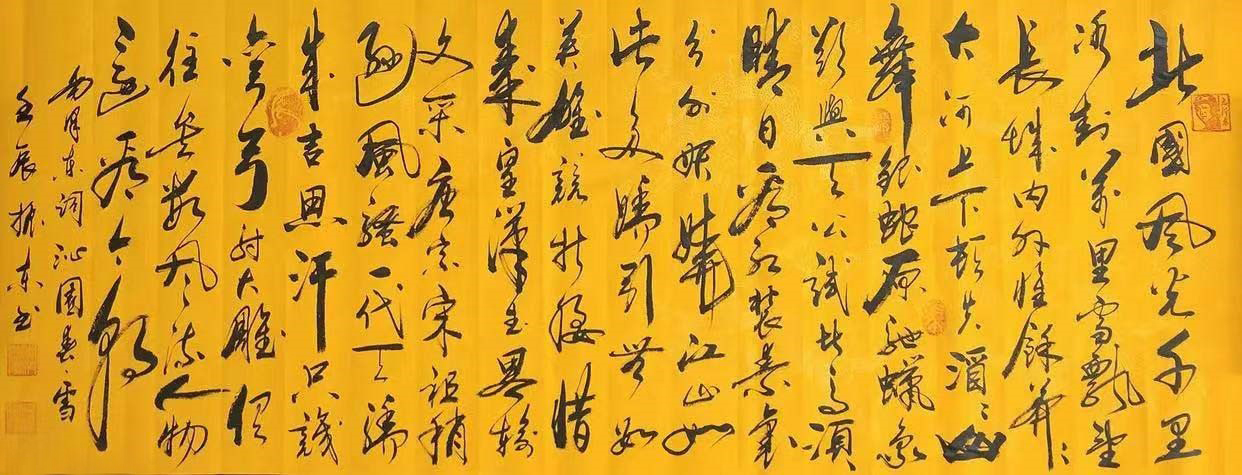 北國風光千里
冰封萬里雪飄望
長城内外惟餘莽〻
大河上下頓失滔〻山
舞銀蛇原馳蠟象
欲與天公試比高須
晴日看紅裝素裹
分外妖嬈江山如
此多嬌引無數
英雄競折腰惜
秦皇漢武略輸
文采唐宗宋祖稍
遜風騷一代天驕
成吉思汗只識
彎弓射大雕俱
往矣數風流人物
還看今朝
毛澤東詞沁園春·雪
壬辰振東書